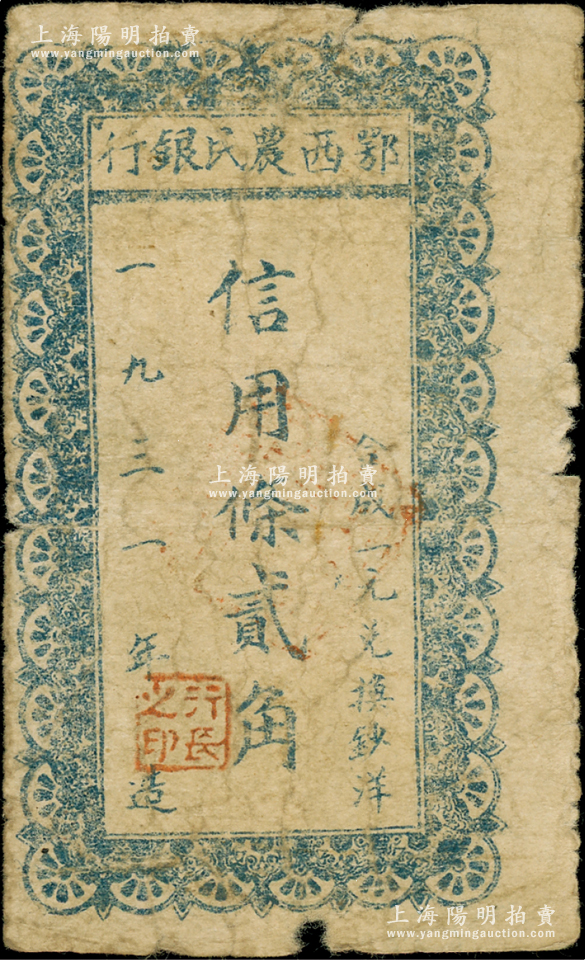 上海陽明拍賣
www.yangmingauction.com
鄂西農民銀行
合成一元兑換鈔洋
信用條貳角
一九三一年造
行民之印
上海陽明拍賣
www.yangmingauction.com
上海陽明拍賣
www.yangmingauction.com